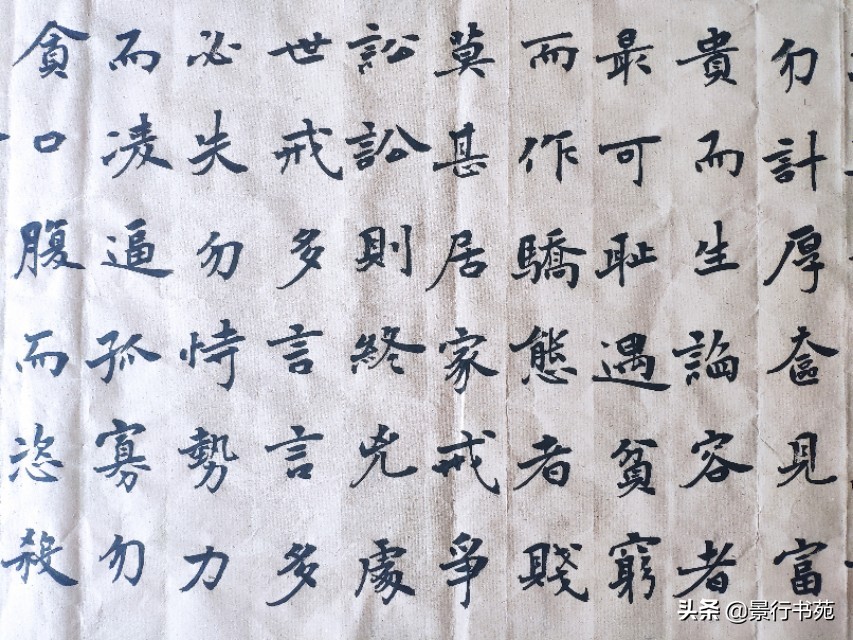 勿計厚奩見富
貴而生諂容者
最可耻遇貧窮
而作驕態者賤
莫甚居家戒爭
訟訟則終兇處
世戒多言言多
必失勿恃勢力
而凌逼孤寡勿
貪口腹而恣殺
头条 @景行书苑